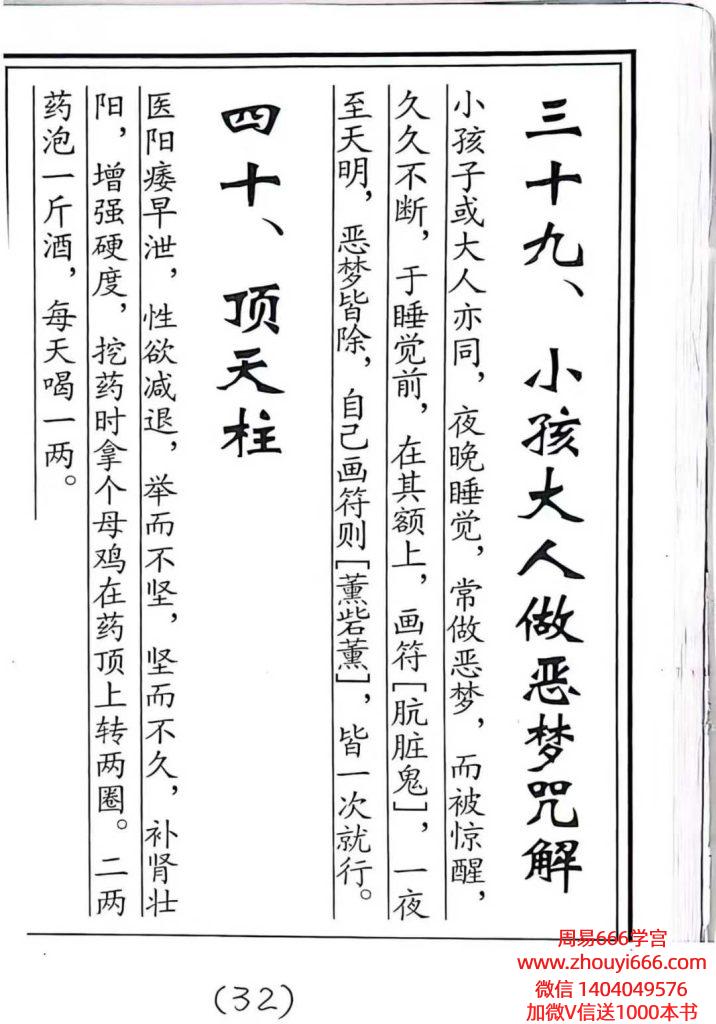 三十九、小孩大人做恶梦咒解
小孩子或大人亦同，夜晚睡觉，常做恶梦，而被惊醒，
久久不断，于睡觉前，在其额上，画符[肮脏鬼]，一夜
至天明，恶梦皆除，自己画符则[薰砦薰]，皆一次就行。
四十、顶天柱
医阳痿早泄，性欲减退，举而不坚，坚而不久，补肾壮
阳，增强硬度，挖药时拿个母鸡在药顶上转两圈。二两
药泡一斤酒，每天喝一两。
(32)
周易666学宫
www.zhouyi666.com
微信 1404049576
加微V信送1000本书